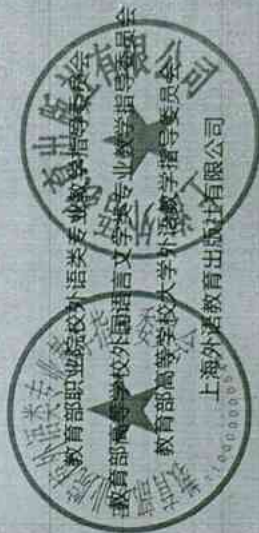 教育部职业院校外语类专业教学指导委员会
教育部高等学校外国语言文学类专业教学指导委员会
教育部高等学校大学外语教学指导委员会
上海外语教育出版社有限公司